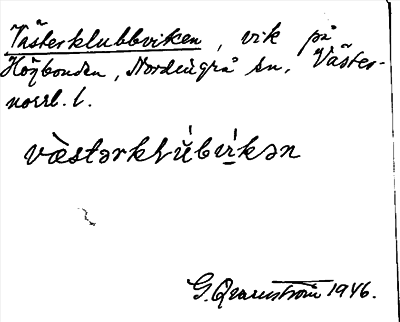 Västerklubbviken, vik på
Högbonden, Nordingrå sn, Väster-
norrl. l.
væ̀stərkłŭ́bvi̱kən
G. Qvarnström 1946.